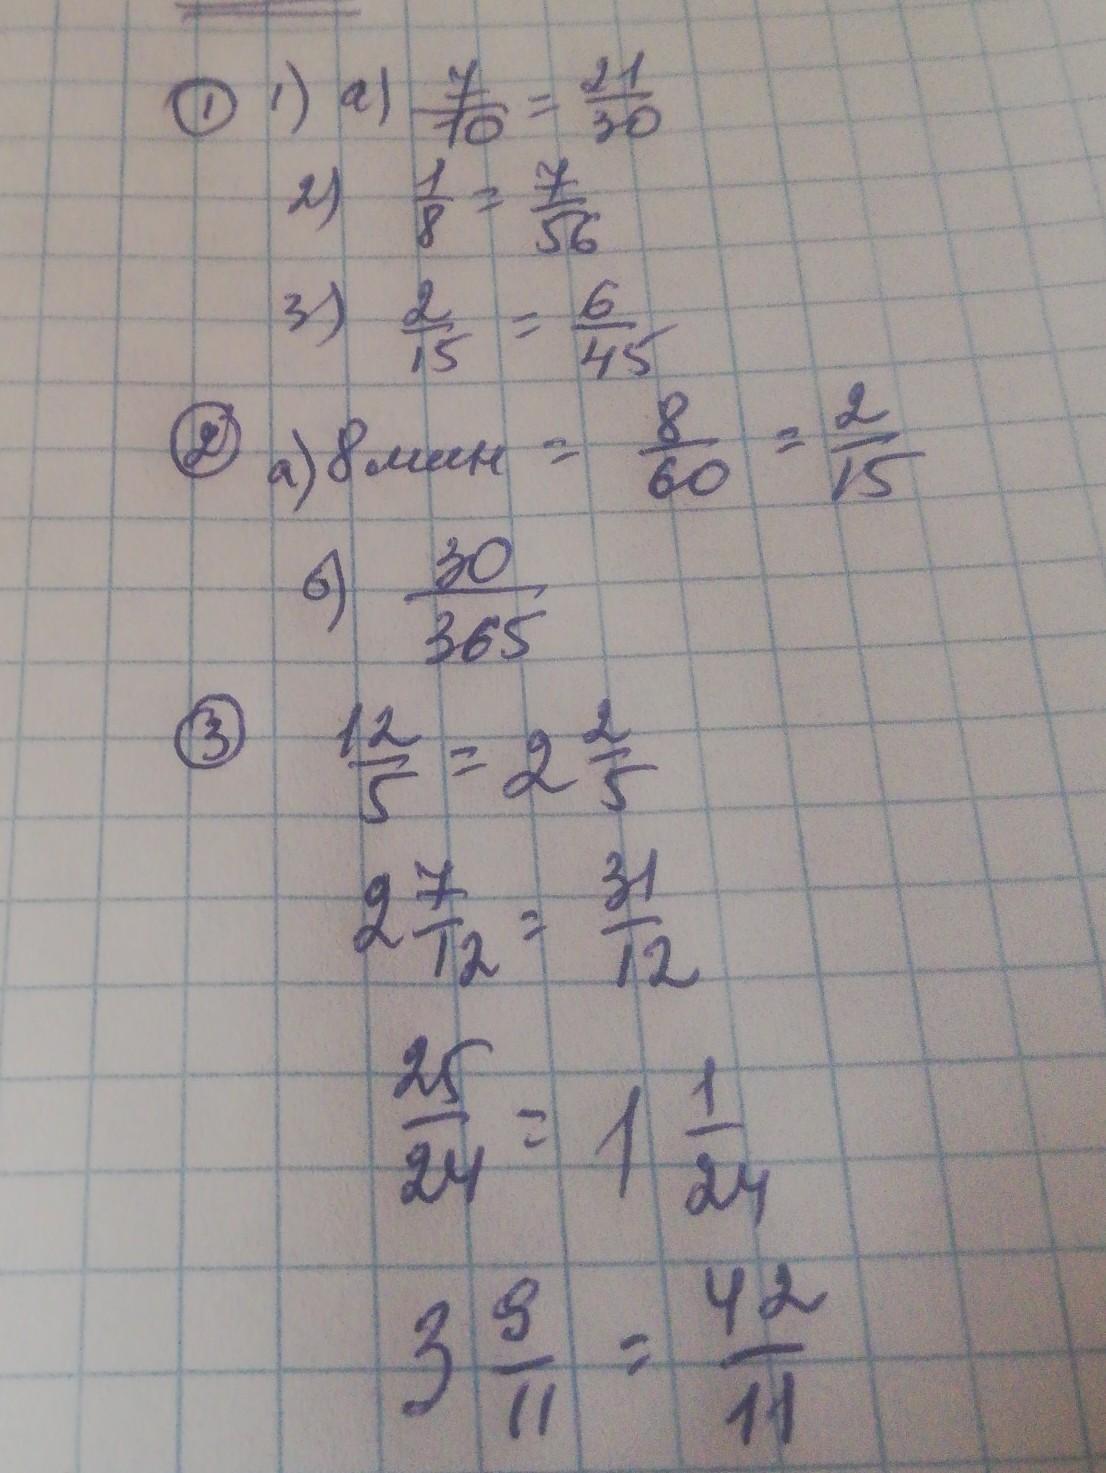 ① 1) а) 7/10 = 21/30
2) 1/8 = 7/56
3) 2/15 = 6/45
② а) 8 мин = 8/60 = 2/15
б) 30/365
③ 12/5 = 2 2/5
2 7/12 = 31/12
25/24 = 1 1/24
3 9/11 = 42/11